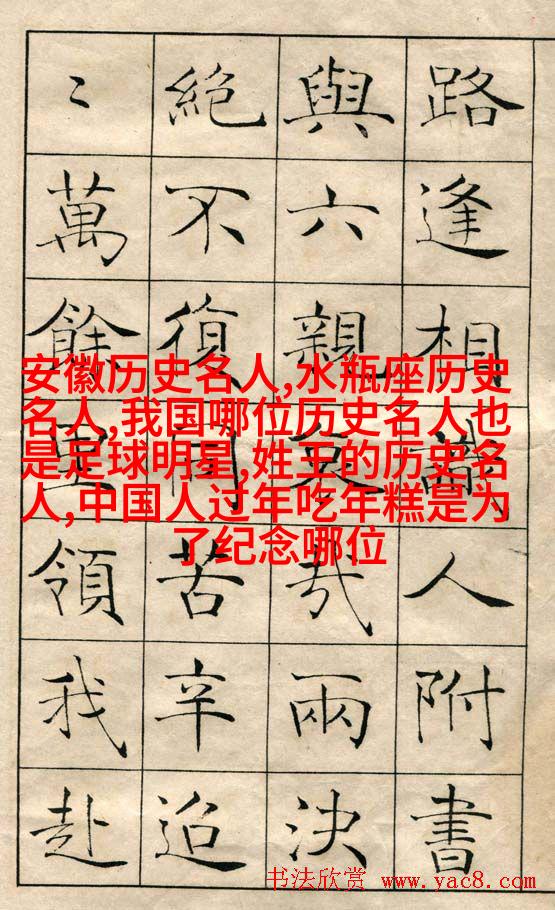 路逢相識人附書
與六親哀哉兩決
絕不復同苦辛迢
〻萬餘里領我赴
安徽历史名人,水瓶座历史
名人,我国哪位历史名人也
是足球明星,姓王的历史名
人,中国人过年吃年糕是为
了纪念哪位
书法欣赏 www.yac8.com